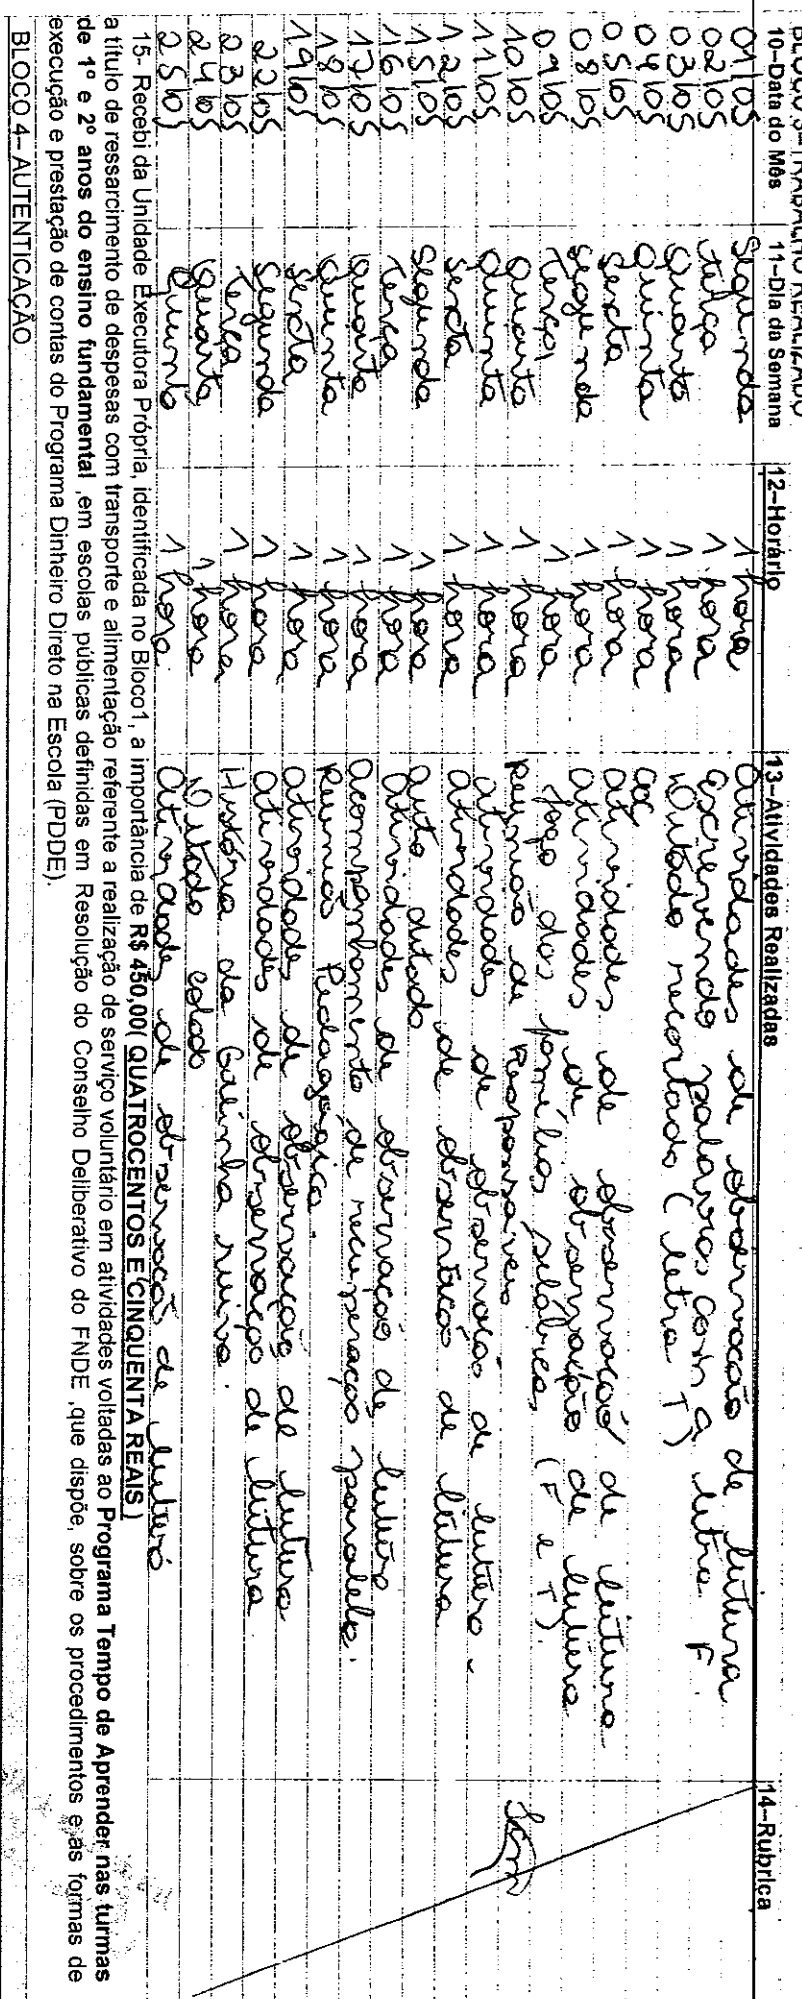 BLOCO 3-TRABALHO REALIZADO
10-Data do Mês 11-Dia da Semana 12-Horário 13-Atividades Realizadas 14-Rubrica
01/05 Segunda 1 hora Atividades de observação de leitura
02/05 terça 1 hora Escrevendo palavras com a letra F.
03/05 Quarta 1 hora Ditado recortado (letra T)
04/05 Quinta 1 hora COC
05/05 Sexta 1 hora atividades de observação de leitura
08/05 segunda 1 hora atividades de observação de leitura
09/05 Terça 1 hora Jogo das famílias silábicas (F e T).
10/05 Quarta 1 hora Reunião de Responsáveis
11/05 Quinta 1 hora atividades de observação de leitura.
12/05 sexta 1 hora atividades de observação de leitura
15/05 Segunda 1 hora auto ditado
16/05 Terça 1 hora atividades de observação de leitura
17/05 Quarta 1 hora acompanhamento de recuperação paralela.
18/05 Quinta 1 hora Reunião Pedagógica.
19/05 Sexta 1 hora atividade de observação de leitura
22/05 Segunda 1 hora atividades de observação de leitura
23/05 Terça 1 hora História da Galinha ruiva.
24/05 Quarta 1 hora Ditado colado
25/05 Quinta 1 hora. atividades de observação de leitura
15- Recebi da Unidade Executora Própria, identificada no Bloco1, a importância de R$ 450,00( QUATROCENTOS E CINQUENTA REAIS )
a título de ressarcimento de despesas com transporte e alimentação referente a realização de serviço voluntário em atividades voltadas ao Programa Tempo de Aprender nas turmas
de 1º e 2º anos do ensino fundamental ,em escolas públicas definidas em Resolução do Conselho Deliberativo do FNDE ,que dispõe, sobre os procedimentos e as formas de
execução e prestação de contas do Programa Dinheiro Direto na Escola (PDDE).
BLOCO 4– AUTENTICAÇÃO